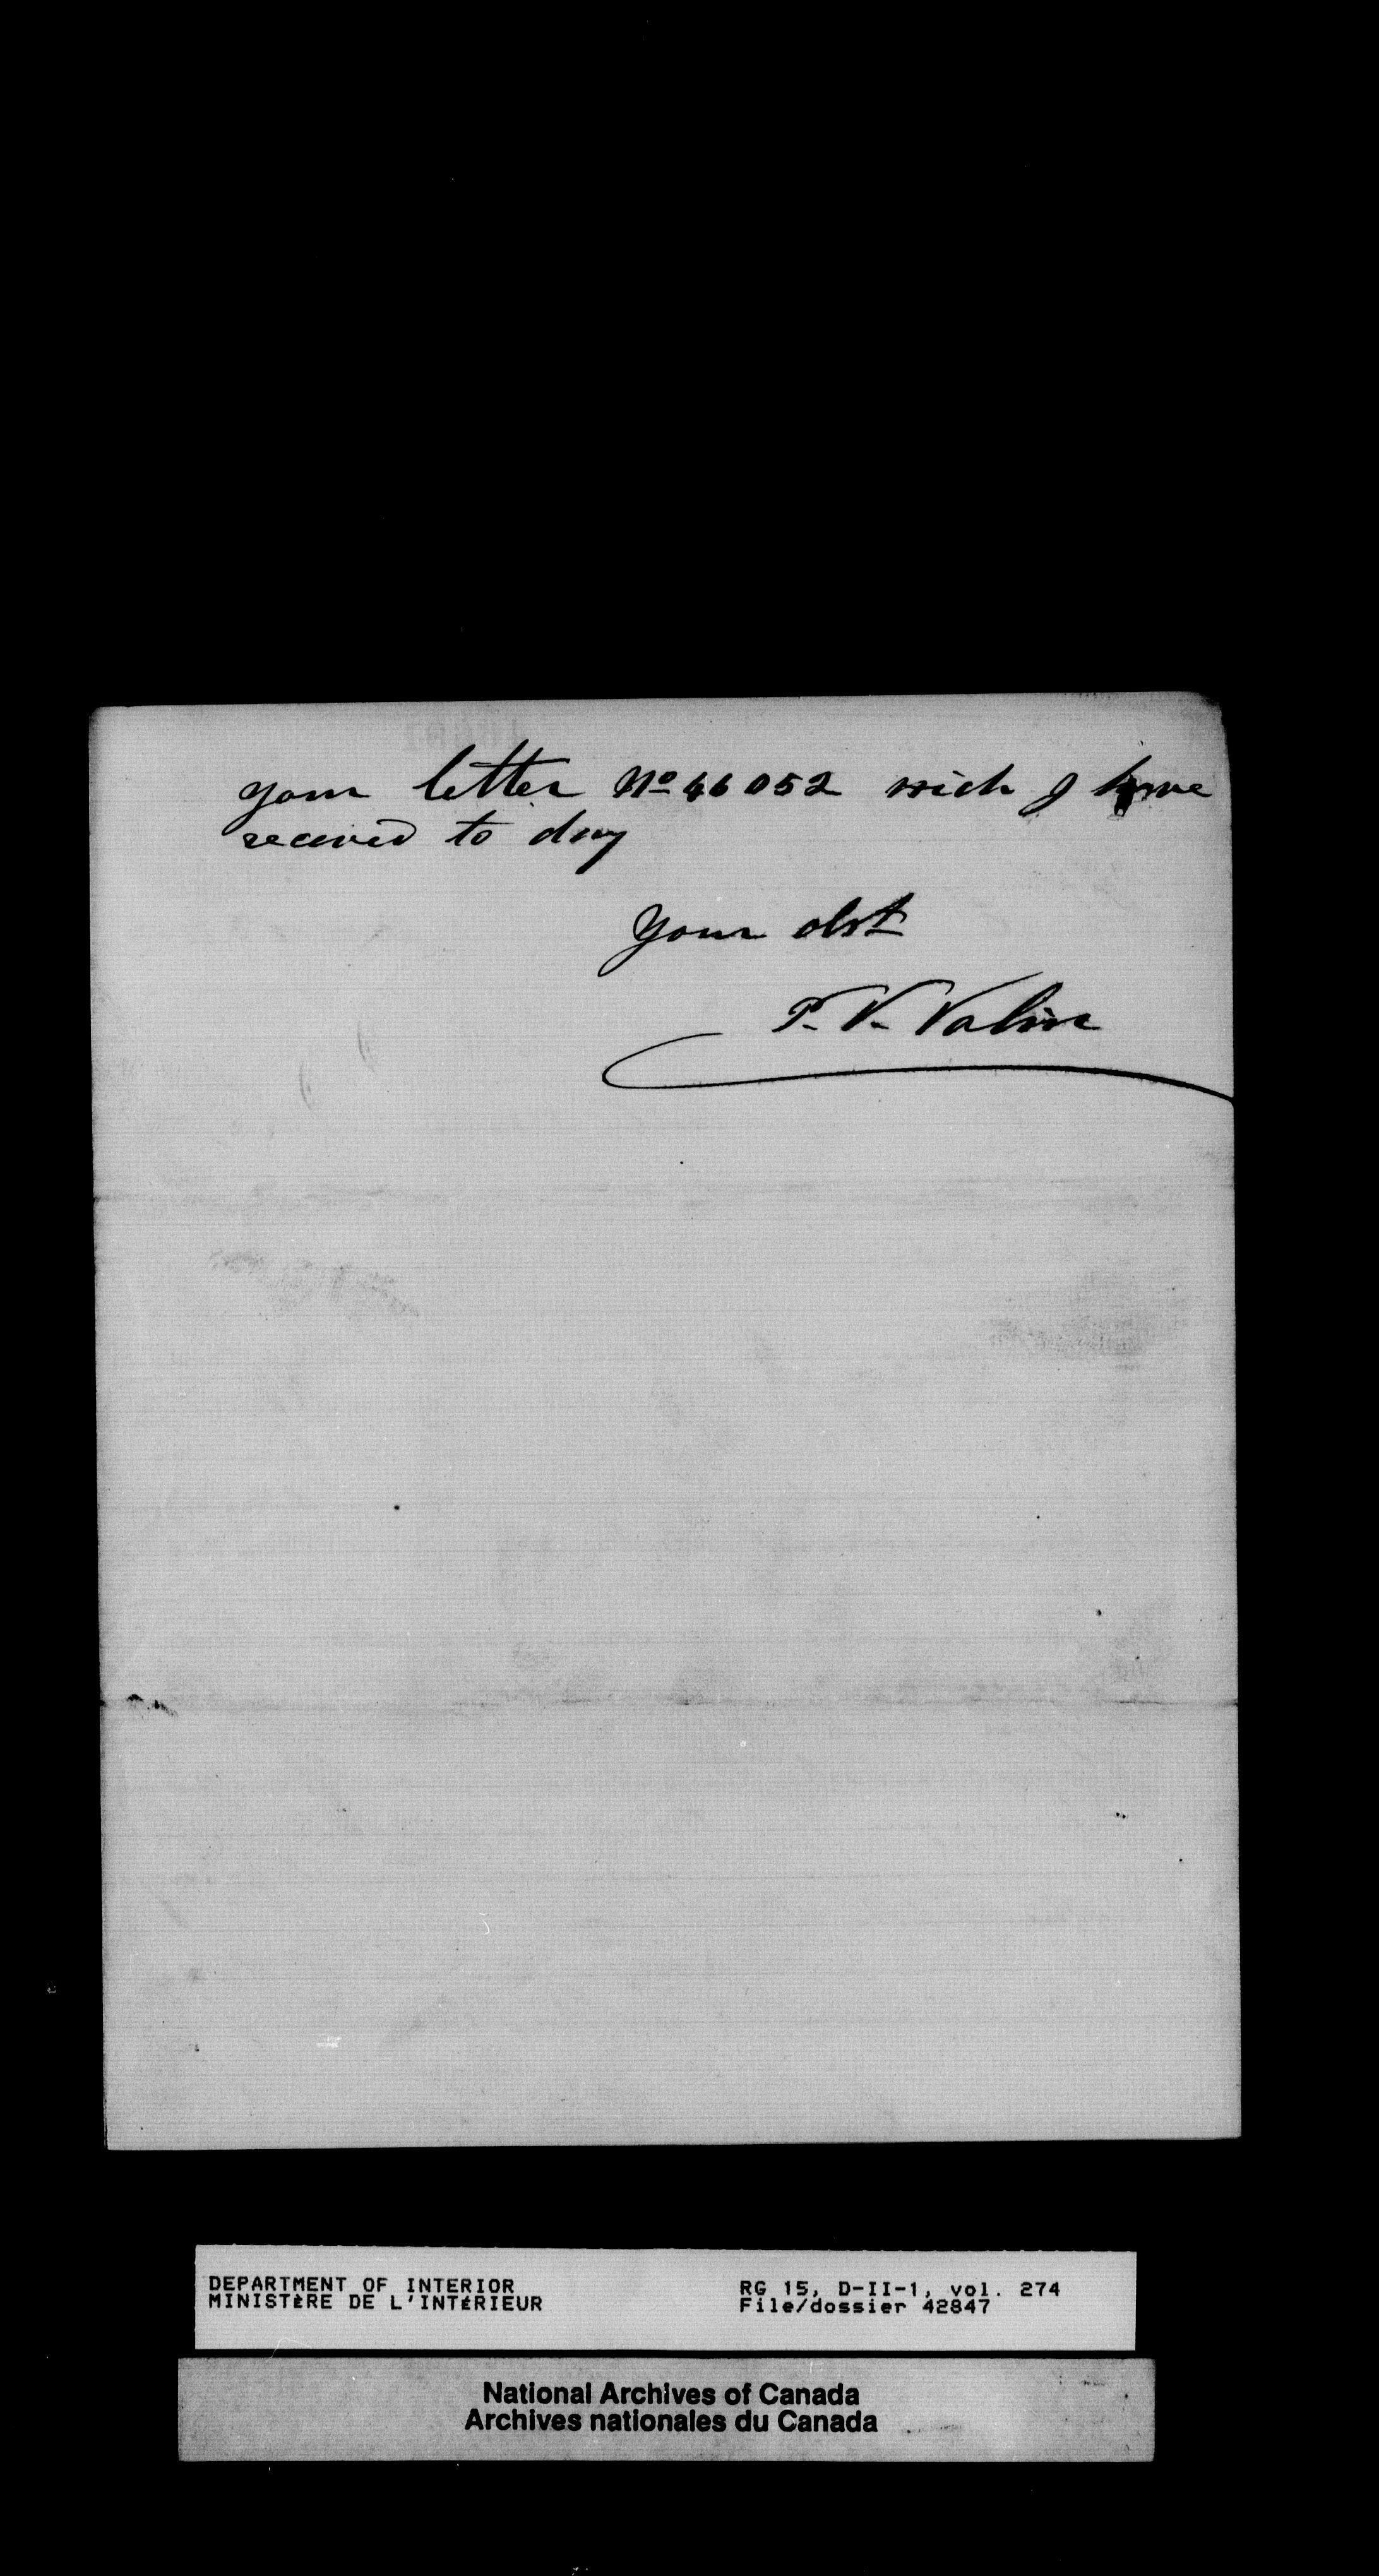 your letter No 46052 wich I have
received to day
Your obst
P. V. Valin
DEPARTMENT OF INTERIOR
MINISTÈRE DE L'INTÉRIEUR
RG 15, D-II-1, vol. 274
File/dossier 42847
National Archives of Canada
Archives nationales du Canada